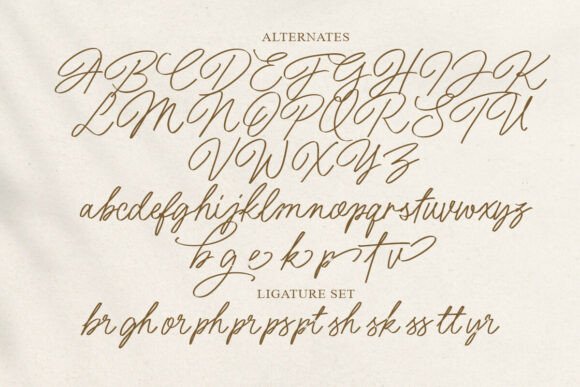 ALTERNATES
A B C D E F G H I J K
L M N O P Q R S T U
V W X Y Z
abcdefghijklmnopqrstuvwxyz
b g e k p s t v
LIGATURE SET
br gh or ph pr ps pt sh sk ss tt yr